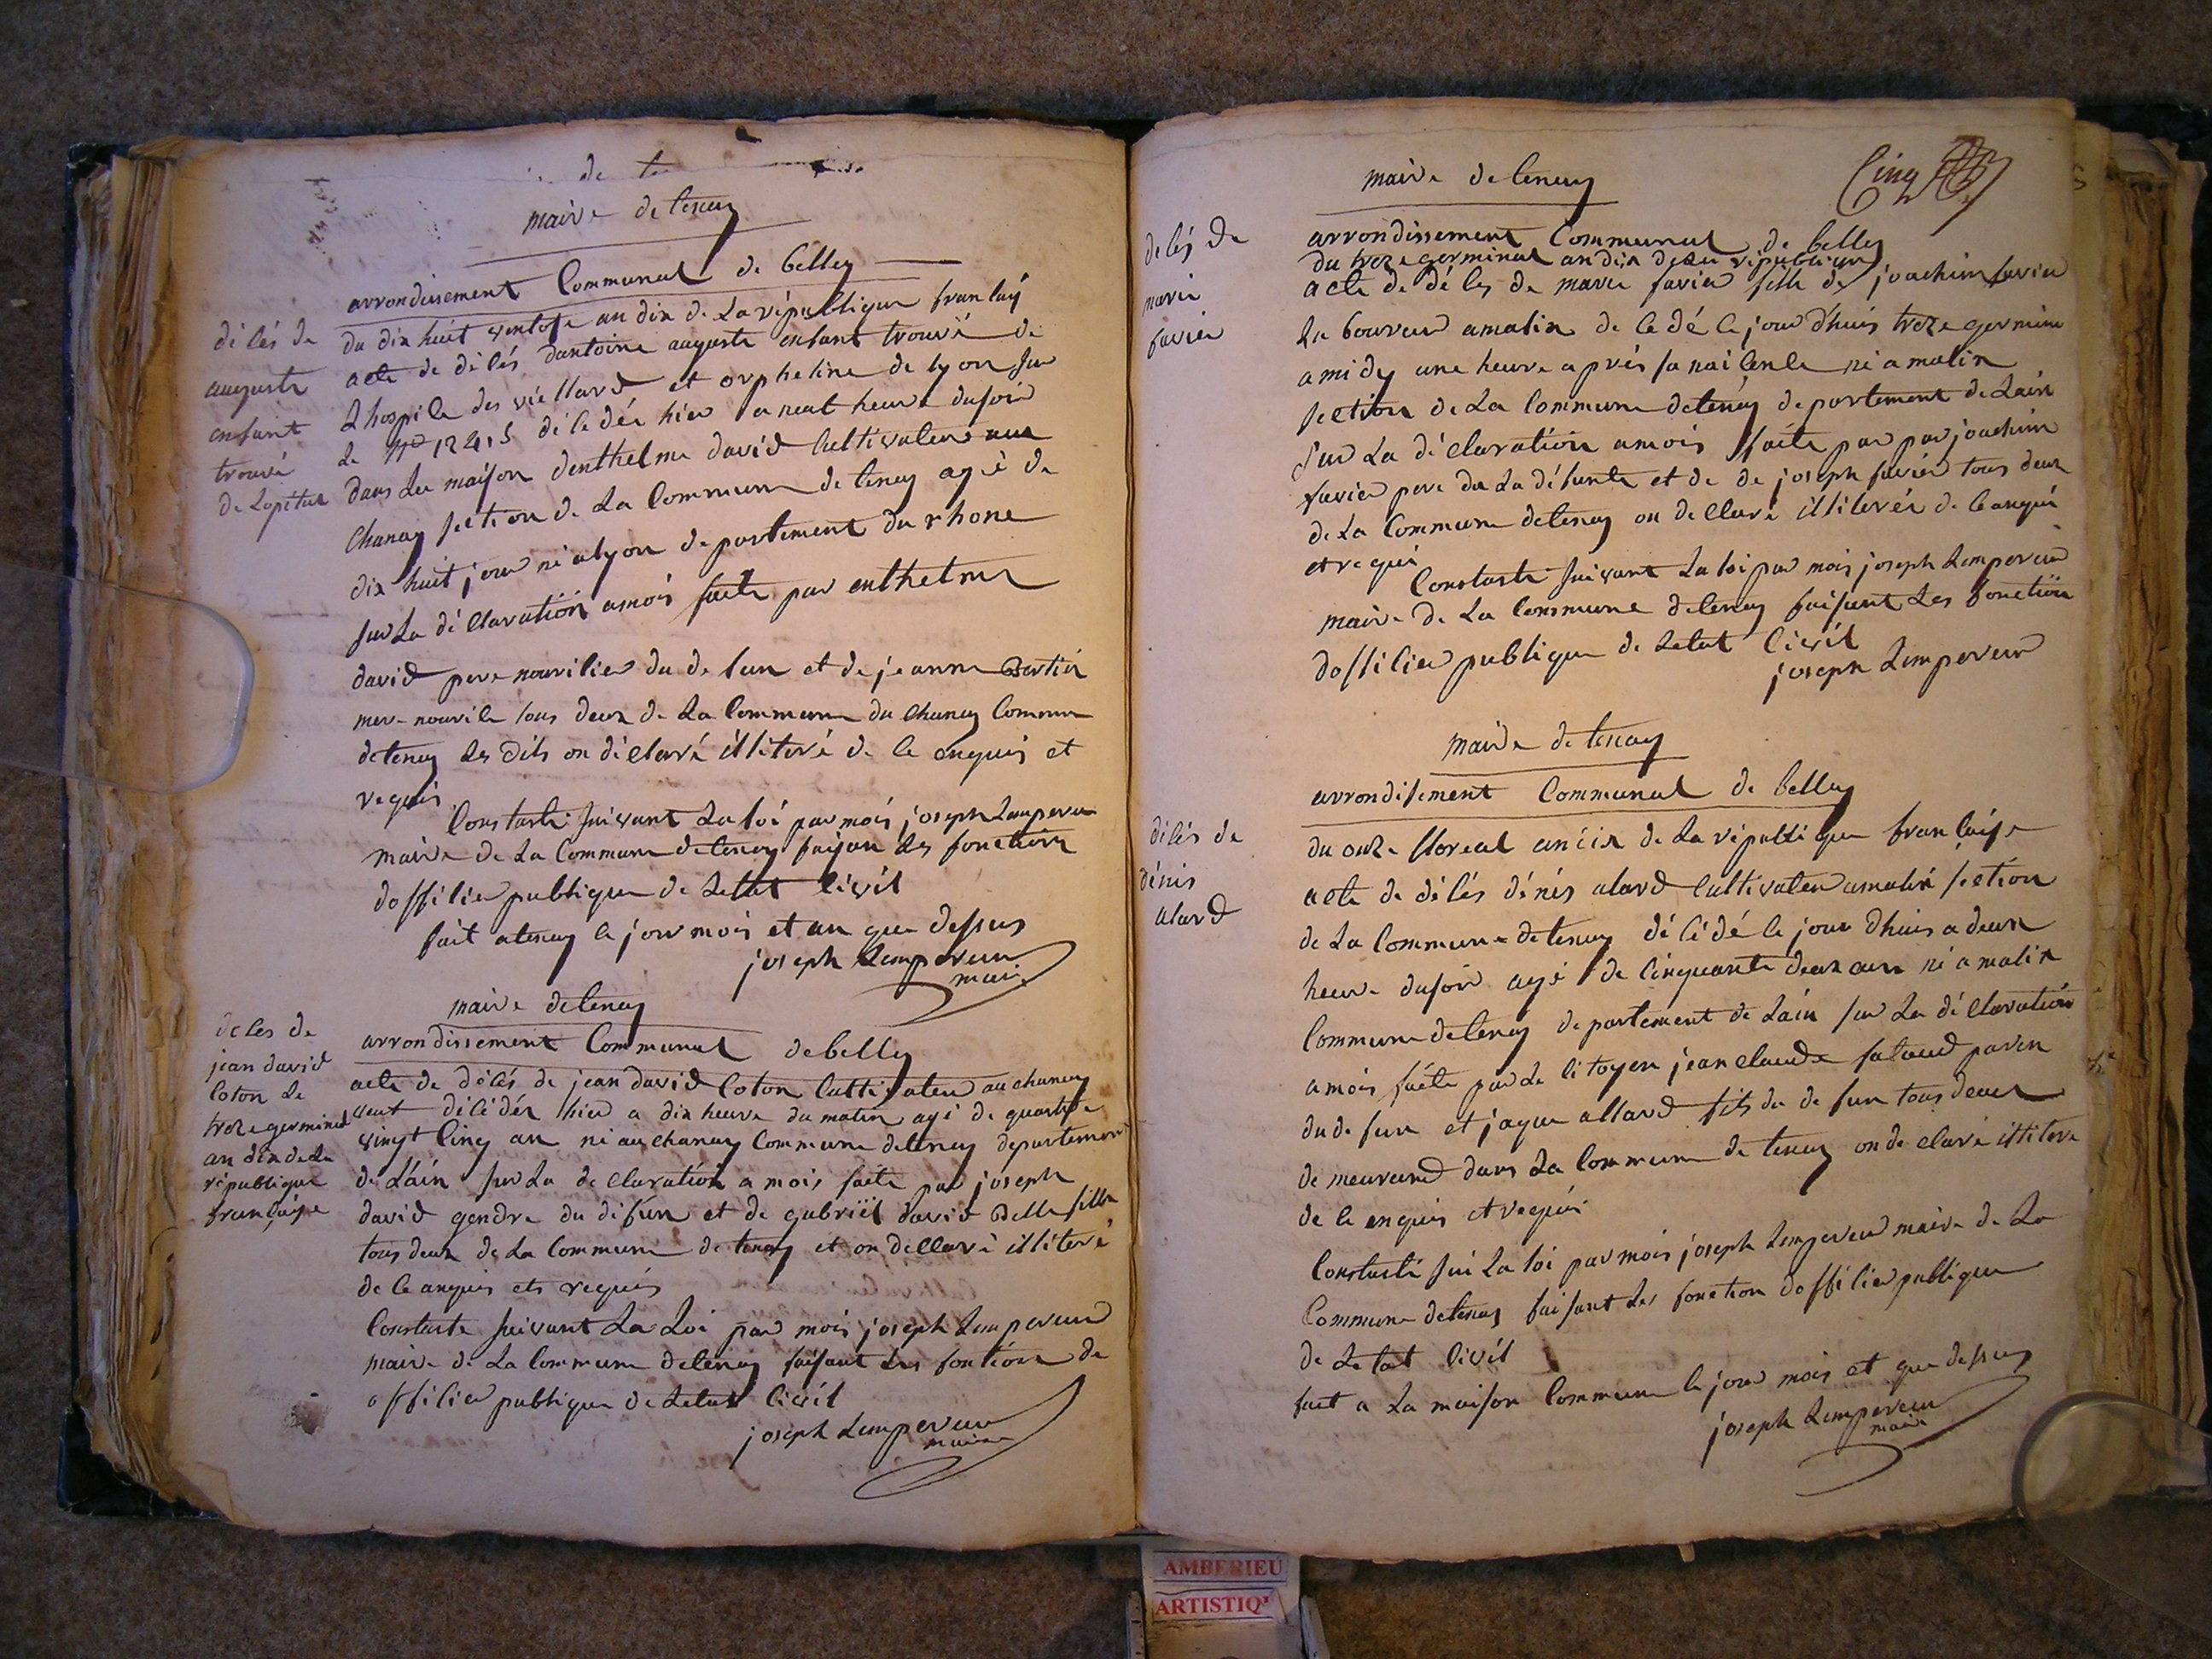 de
maire de tenay
arrondissement Communal de belley
décés de
auguste
enfant
trouvé
de lopital
du dix huit ventose an dix de La république francaij
acte de décés dantoine auguste enfant trouvé de
Lhospice des viellard et orpheline de lyon sur
Le N° 12415 décédéé hier a neuf heure dusoir
dans La maison denthelme david Cultivateur au
Chanay section de La Commune de tenay agé de
dix huit jour né alyon departement du rhone
sur La déclaration amois faite par enthelme
david pere nouricier du defun et de jeanne Bertier
mere nourice tous deux de La Commune du chanay Commune
detenay Les dits on déclaré illiteré de ce enquis et
requis
Constaté suivant La loi par mois joseph Lempereur
maire de La Commune detenay faisan Les fonction
dofficier publique de Letat civil
fait atenay le jour mois et an que dessus
joseph Lempereur
maire
maire detenay
arrondissement Communal debelley
deces de
jean david
coton Le
treze germinal
an dix de La
république
française
acte de décés de jean david coton cultivateur au chanay
décédéé hier a dix heure du matin agé de quatre
vingt cinq an né au chanay Commune detenay departement
de Láin sur La declaration a mois faite par joseph
david gendre du défun et de gabriël david Belle fille
tous deux de La Commune de tenay et on declaré illiteré
de ce anquis ets requis
Constaté suivant La Loi par mois joseph Lempereur
maire de La Commune detenay faisant Les fontion de
officier publique de Letat civil
joseph Lempereur
maire
maire de tenay
Cinq
arrondissement Communal de belley
du treze germinal an dix de La république
décés de
marie
favier
acte de décés de marie favier fille de joachim favier
La boureur amalix de cedé ce jour d'huis treze germine
amidy une heure aprés sa naicence né amalix
section de La Commune detenay departement de Lain
sur La déclaration amois faite par par joachim
favier pere de La défunte et de de joseph favier tous deux
de La Commune detenay on declaré illiteréé de ceanquis
et requi
Constaté suivant La loi par mois joseph Lempereur
maire de La Commune detenay faisant Les fonction
dofficier publique de Letat civil
joseph Lempereur
maire de tenay
arrondisement Communal de belley
décés de
dénis
alard
du onze floreal an dix de La république française
acte de décés dénis alard cultivateur amalix section
de La Commune de tenay décédé ce jour dhuis a deux
heure dusoir agé de cinquante deux an né a malix
Commune detenay departement de Lain sur La déclaration
amois faite par Le citoyen jean claude falavel paren
du defun et jaque allard fils du defun tous deux
demeurand dans La Commune de tenay on declaré illiteré
de ce enquis et requis
Constaté sui La loi par mois joseph Lempereur maire de La
Commune detenay faisant Les fonction dofficier publique
de Letat civil
fait a La maison Commune le jour mois et que dessus
joseph Lempereur
maire
AMBERIEU
ARTISTIQ'